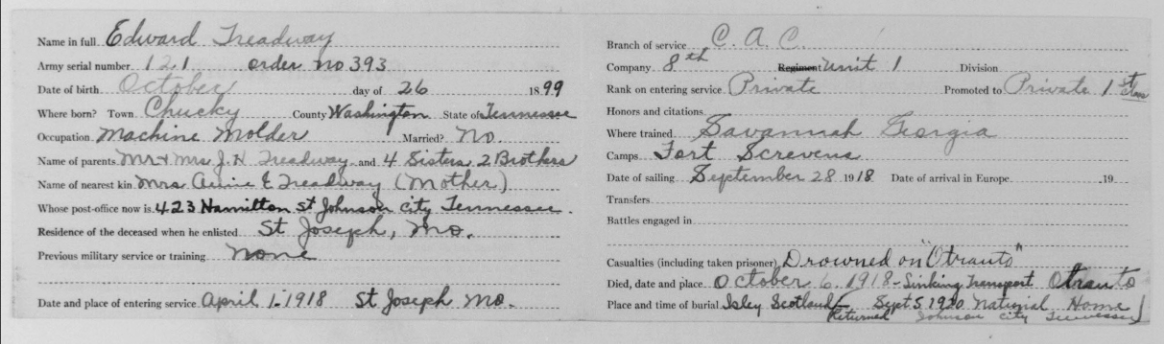 Name in full Edward Treadway
Army serial number 121 order no 393
Date of birth October day of 26 1899
Where born? Town Chucky County Washington State of Tennessee
Occupation Machine Molder Married? No.
Name of parents Mr & Mrs J. N. Treadway and 4 Sisters 2 Brothers
Name of nearest kin Mrs E Treadway (Mother)
Whose post-office now is 423 Hamilton St Johnson City Tennessee.
Residence of the deceased when he enlisted St Joseph, Mo.
Previous military service or training None
Date and place of entering service April 1-1918 St Joseph Mo.
Branch of service C. A. C.
Company 8th Regiment Unit 1 Division
Rank on entering service Private Promoted to Private 1st Class
Honors and citations
Where trained Savannah Georgia
Camps Fort Screvens
Date of sailing September 28 1918 Date of arrival in Europe 19
Transfers
Battles engaged in
Casualties (including taken prisoner) Drowned on "Otranto"
Died, date and place October 6. 1918 - Sinking Transport Otranto
Place and time of burial Isley Scotland Sept 5 1920 National Home
Returned Johnson City Tennessee